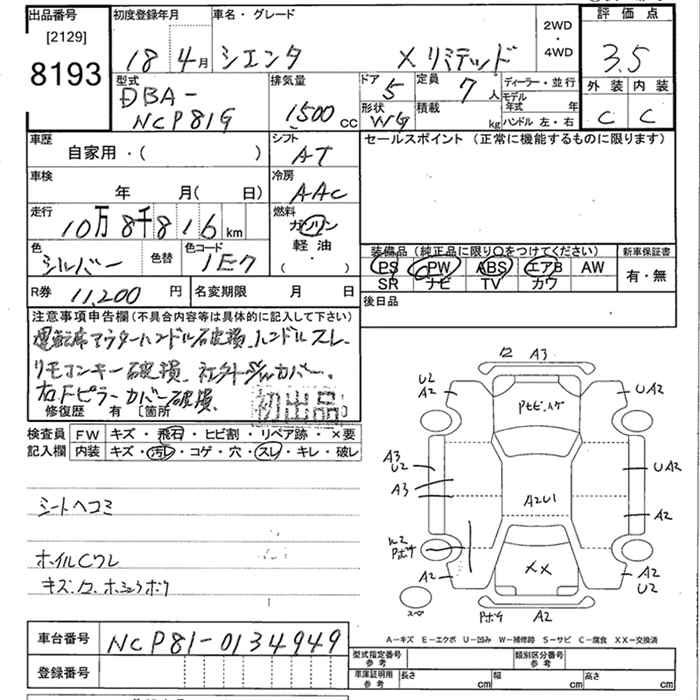 出品番号
[2129]
8193
初度登録年月
18 4月
車名・グレード
シエンタ X リミテッド
2WD
・
4WD
評価点
3.5
外装 内装
C C
型式
DBA-
NCP81G
排気量
1500 cc
ドア 5
定員 7人
形状 WG
積載 kg
ディーラー・並行
モデル年式 年
ハンドル 左・右
車歴
自家用・( )
シフト
AT
セールスポイント (正常に機能するものに限ります)
車検
年 月( 日)
冷房
AAC
走行
10万8千816 km
燃料
ガソリン
軽油
( ・ )
色
シルバー
色替
色コード
1E7
装備品 (純正品に限り○をつけてください)
新車保証書
PS PW ABS エアB AW
SR ナビ TV カワ
有・無
R券 11,200円
名変期限 月 日
後日品
注意事項申告欄(不具合内容等は具体的に記入して下さい)
運転席アウターハンドル破損 ハンドルスレ
リモコンキー破損 社外シートカバー
右Fピラーカバー破損
初出品
修復歴 有 [箇所
検査員
記入欄
FW キズ・飛石・ヒビ割・リペア跡・×要
内装 キズ・汚レ・コゲ・穴・スレ・キレ・破レ
シートヘコミ
ホイルCワレ
12 A3
U2
A2
UA2
A3
U2
A3
UA2
A2U1
A2
Pホサ
A2
××
A2
U2
スペ
Pホサ
A2
A-キズ E-エクボ U-凹み W-補修跡 S-サビ C-腐食 XX-交換済
車台番号
NCP81-0134949
登録番号
型式指定番号
参考
類別区分番号
参考
車庫証明用
参考
長さ cm
幅 cm
高さ cm